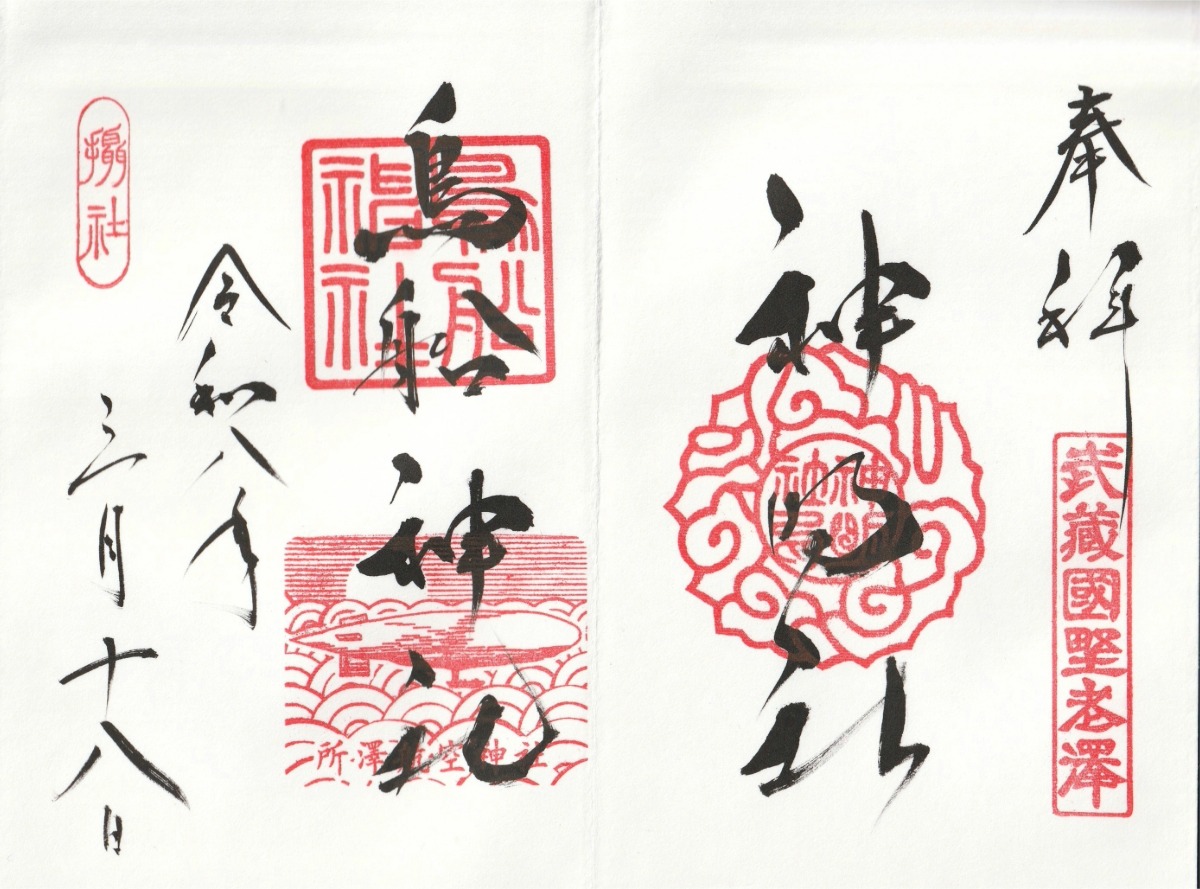 奉拝
武藏國野老澤
神明社
鳥船神社
鳥船神社
所澤航空神社
令和八年
三月十八日
攝社